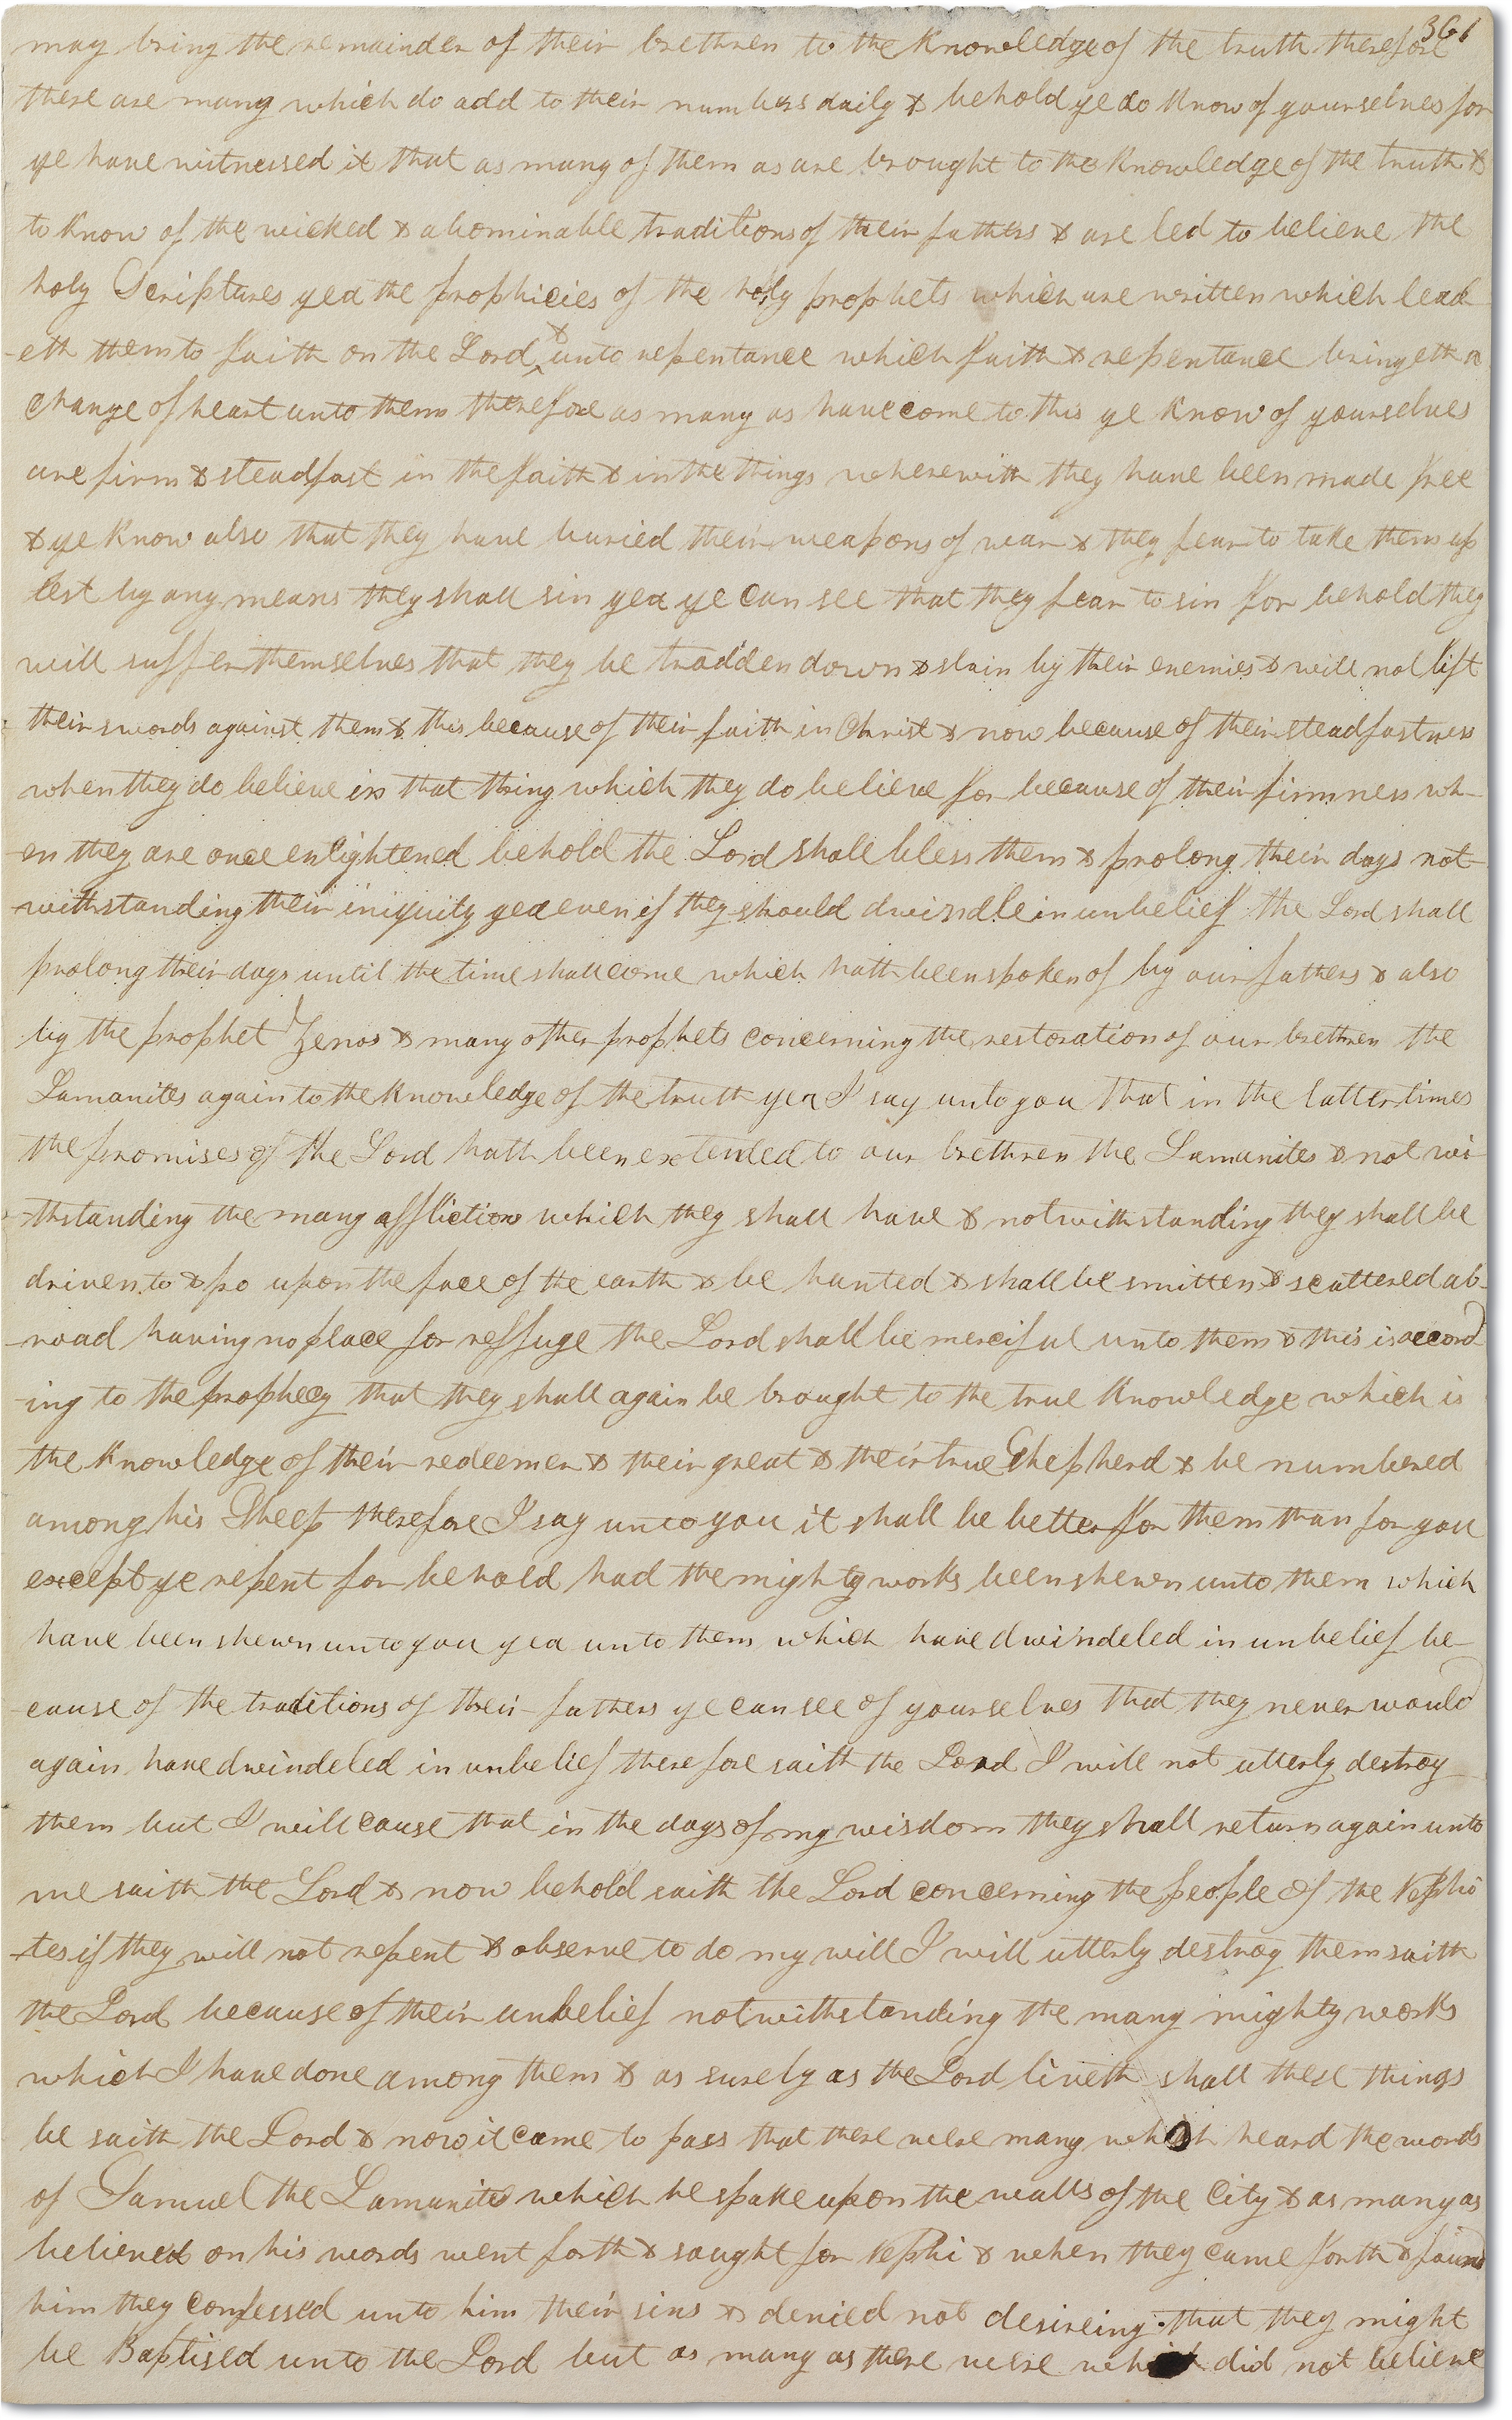 361
may bring the remainder of their brethren to the knowledge of the truth therefore
there are many which do add to their numbers daily & behold ye do know of yourselves for
ye have witnessed it that as many of them as are brought to the knowledge of the truth &
to know of the wicked & abominable traditions of their fathers & are led to believe the
holy Scriptures yea the prophicies of the holy prophets which are written which lead
-eth them to faith on the Lord & unto repentance which faith & repentance bringeth a
change of heart unto them therefore as many as have come to this ye know of yourselves
are firm & steadfast in the faith & in the things wherewith they have been made free
& ye know also that they have buried their weapons of war & they fear to take them up
lest by any means they shall sin yea ye can see that they fear to sin for behold they
will suffer themselves that they be tradden down & slain by their enemies & will not lift
their swords against them & this because of their faith in Christ & now because of their steadfastness
when they do believe in that thing which they do believe for because of their firmness wh-
-en they are once enlightened behold the Lord shall bless them & prolong their days not-
-withstanding their iniquity yea even if they should dwindle in unbelief the Lord shall
prolong their days until the time shall come which hath been spoken of by our fathers & also
by the prophet Zenos & many other prophets concerning the restoration of our brethren the
Lamanites again to the knowledge of the truth yea I say unto you that in the latter times
the promises of the Lord hath been extended to our brethren the Lamanites & not wi-
-thstanding the many afflictions which they shall have & notwithstanding they shall be
driven to & fro upon the face of the earth & be hunted & shall be smitten & scattered ab-
-road having no place for reffuge the Lord shall be merciful unto them & this is accord
-ing to the prophecy that they shall again be brought to the true knowledge which is
the knowledge of their redeemer & their great & their true Shepherd & be numbered
among his Sheep therefore I say unto you it shall be better for them than for you
except ye repent for behold had the mighty works been shewn unto them which
have been shewn unto you yea unto them which have dwindeled in unbelief be-
-cause of the traditions of their fathers ye can see of yourselves that they never would
again have dwindeled in unbelief therefore saith the Lord I will not utterly destroy
them but I will cause that in the days of my wisdom they shall return again unto
me saith the Lord & now behold saith the Lord concerning the people of the Nephi
-tes if they will not repent & observe to do my will I will utterly destroy them saith
the Lord because of their unbelief notwithstanding the many mighty works
which I have done among them & as surely as the Lord liveth shall these things
be saith the Lord & now it came to pass that there were many which heard the words
of Samuel the Lamanite which he spake upon the walls of the City & as many as
believed on his words went forth & sought for Nephi & when they came forth & found
him they confessed unto him their sins & denied not desireing that they might
be Baptised unto the Lord but as many as there were which did not believe